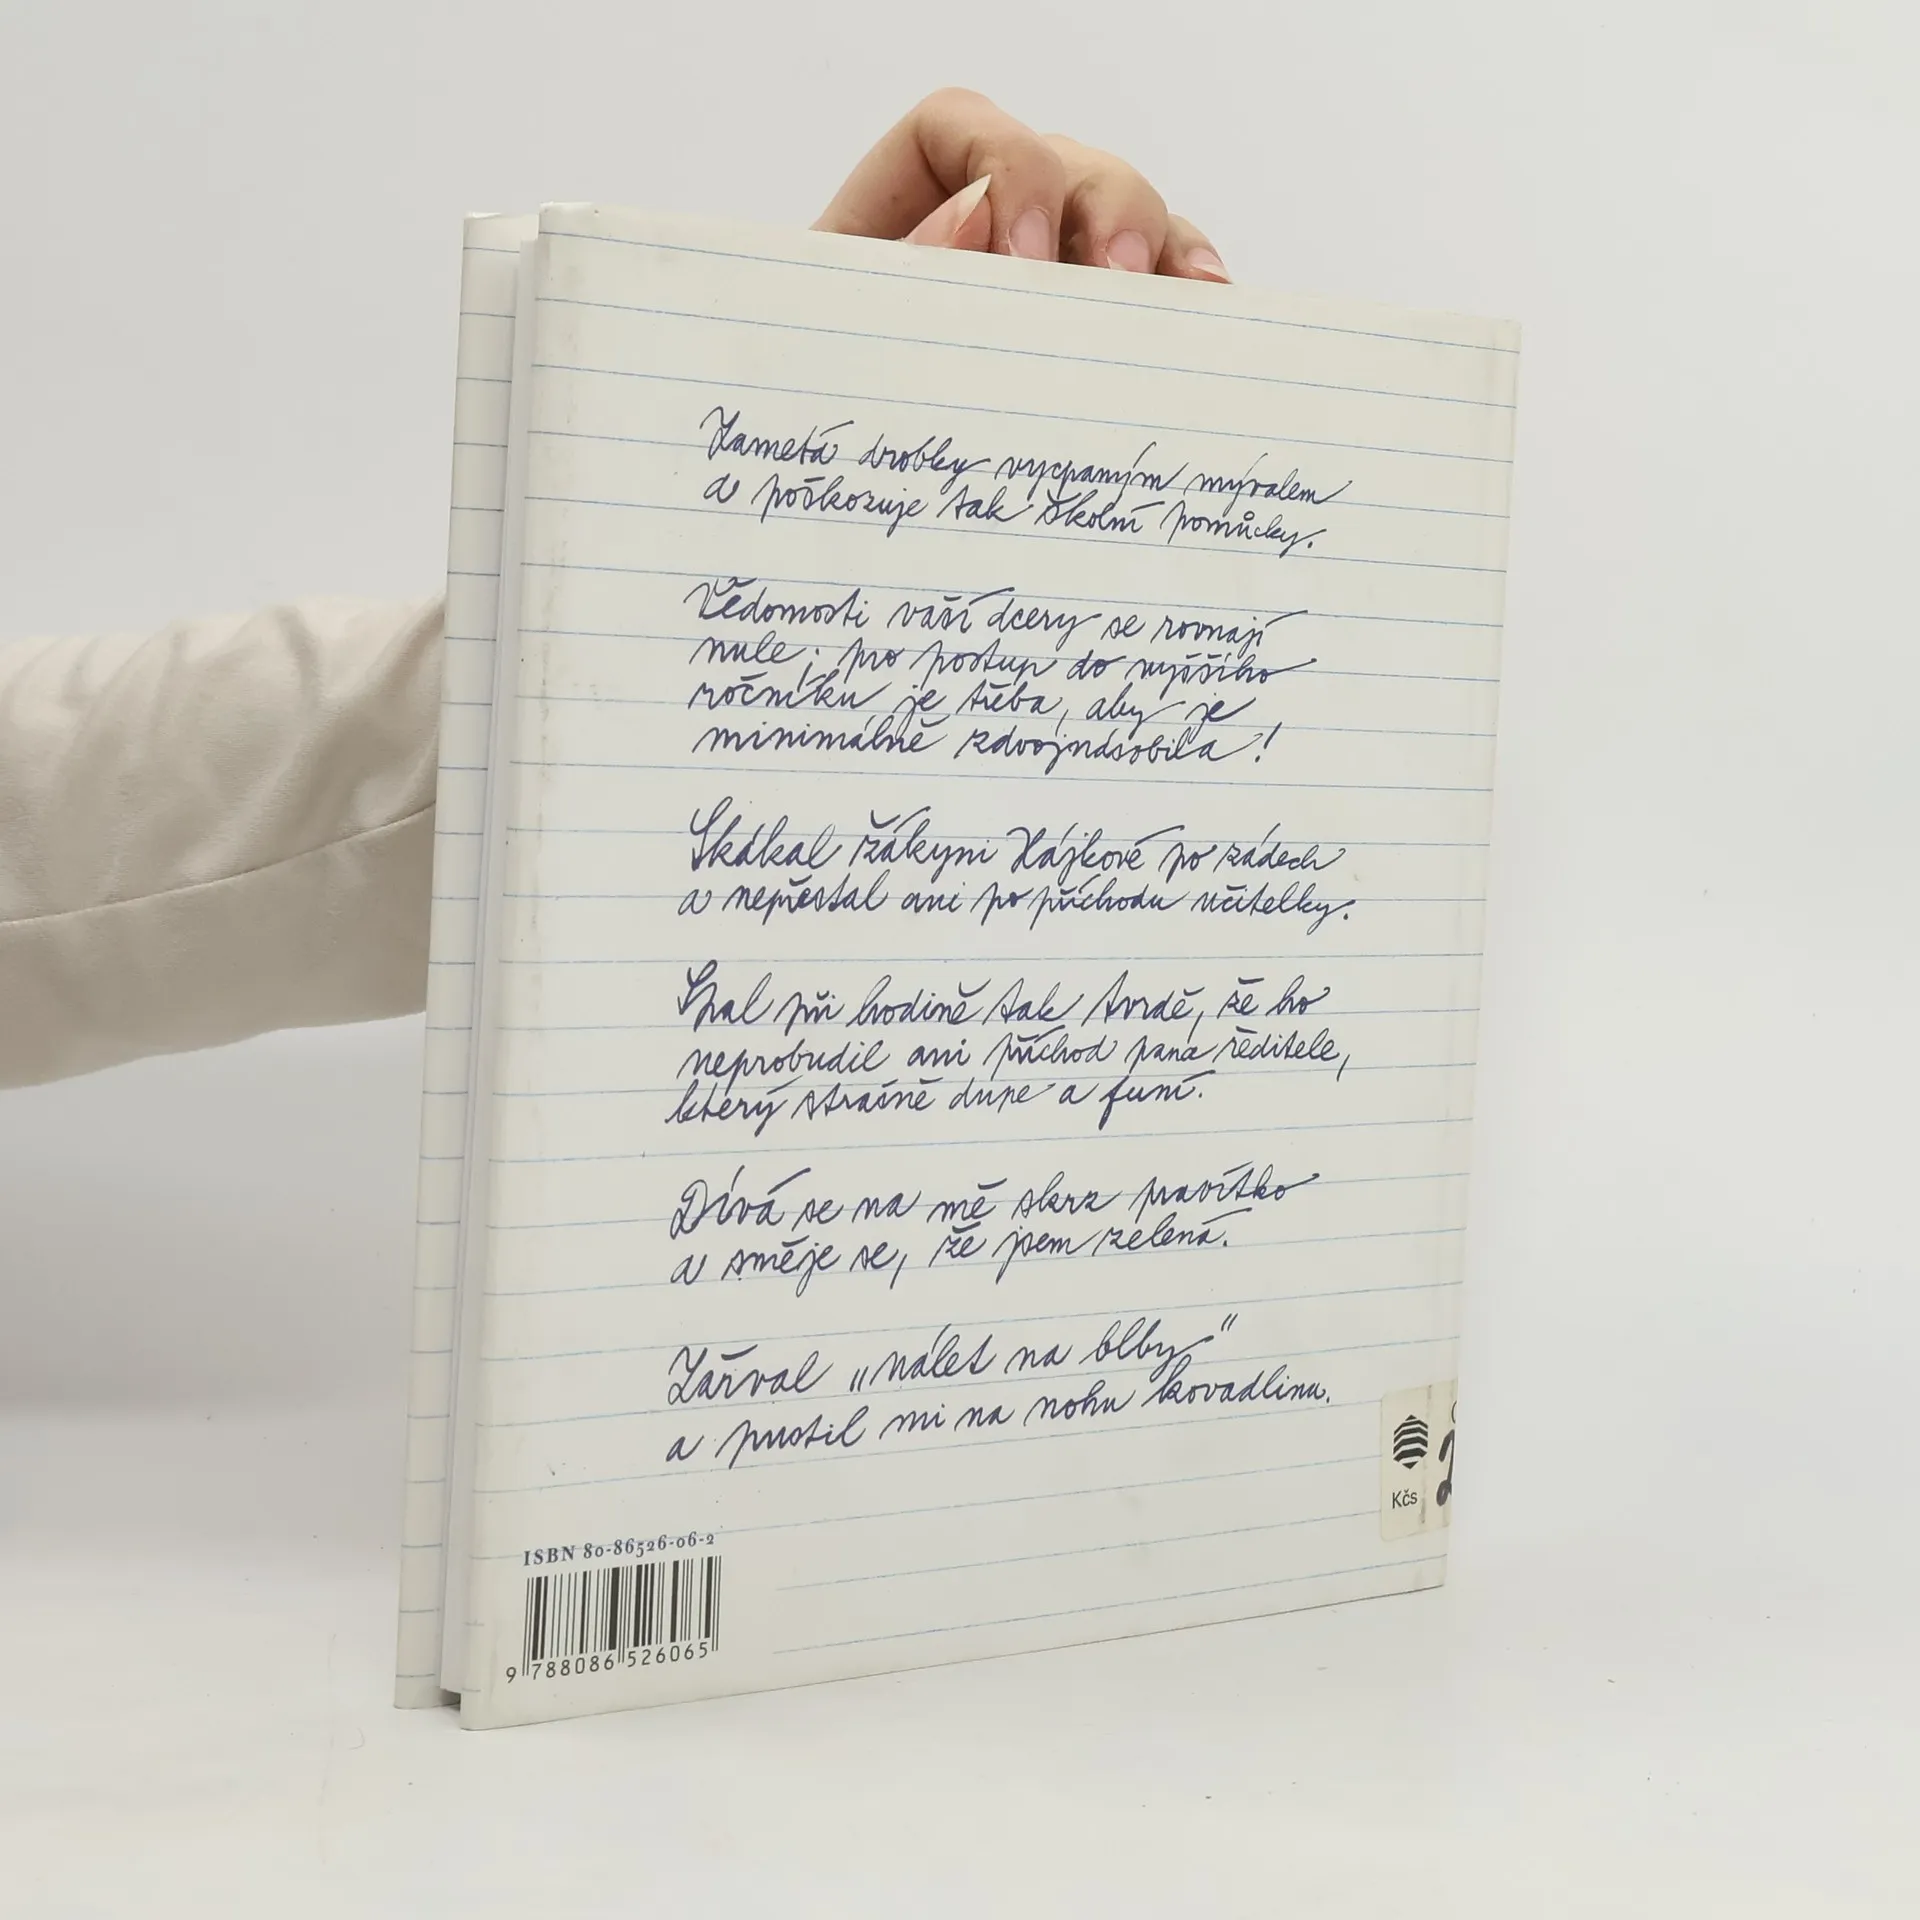 Zametá drobky vycpaným mývalem
a poškozuje tak školní pomůcky.
Vědomosti vaší dcery se rovnají
nule; pro postup do vyššího
ročníku je třeba, aby je
minimálně zdvojnásobila!
Skákal žákyni Hájkové po zádech
a nepřestal ani po příchodu učitelky.
Spal při hodině tak tvrdě, že ho
neprobudil ani příchod pana ředitele,
který strašně dupe a funí.
Dívá se na mě skrz pravítko
a směje se, že jsem zelená.
Zařval „nálet na blby“
a pustil mi na nohu kovadlinu.
Kčs
ISBN 80-86526-06-2
9 788086 526065